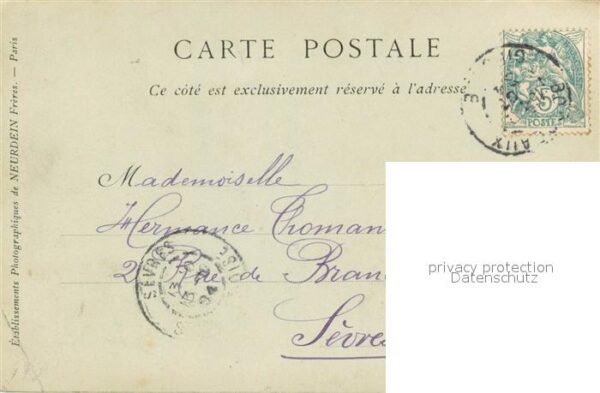 CARTE POSTALE
Ce côté est exclusivement réservé à l'adresse
Établissements Photographiques de NEURDEIN Frères. — Paris
5
POSTE
Mademoiselle
Hermance Thoman
2 Rue de Bran
Sèvres
SÈVRES
privacy protection
Datenschutz